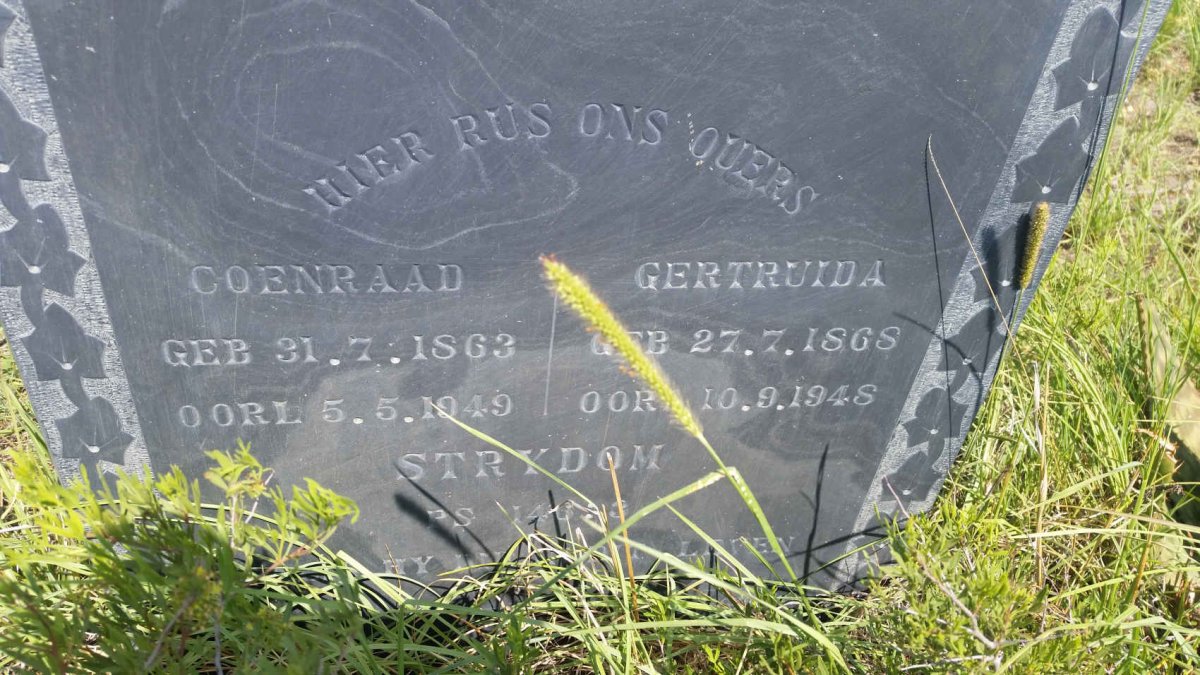 HIER RUS ONS OUERS
COENRAAD
GEB 31.7.1863
OORL 5.5.1949
GERTRUIDA
GEB 27.7.1868
OORL 10.9.1948
STRYDOM
PS